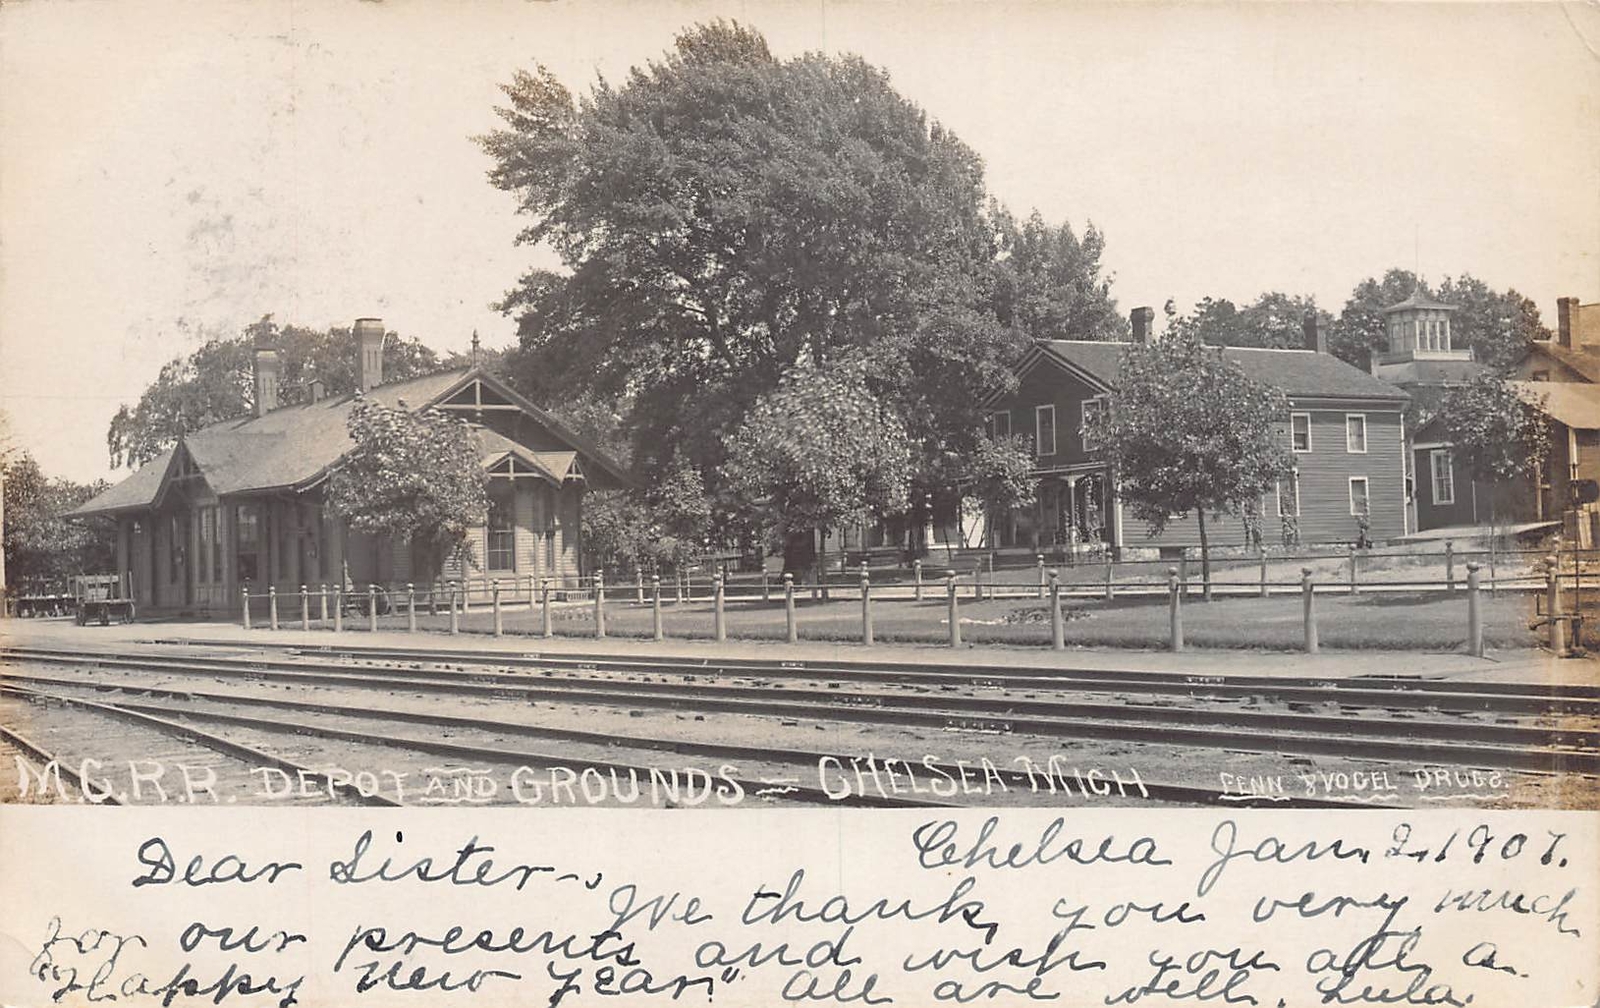 M.C.R.R. DEPOT AND GROUNDS - CHELSEA-MICH FENN & VOGEL DRUGS.
Dear Sister-, Chelsea Jan. 2, 1907.
We thank you very much
for our presents and wish you all a
"Happy New Year" All are well. Lula